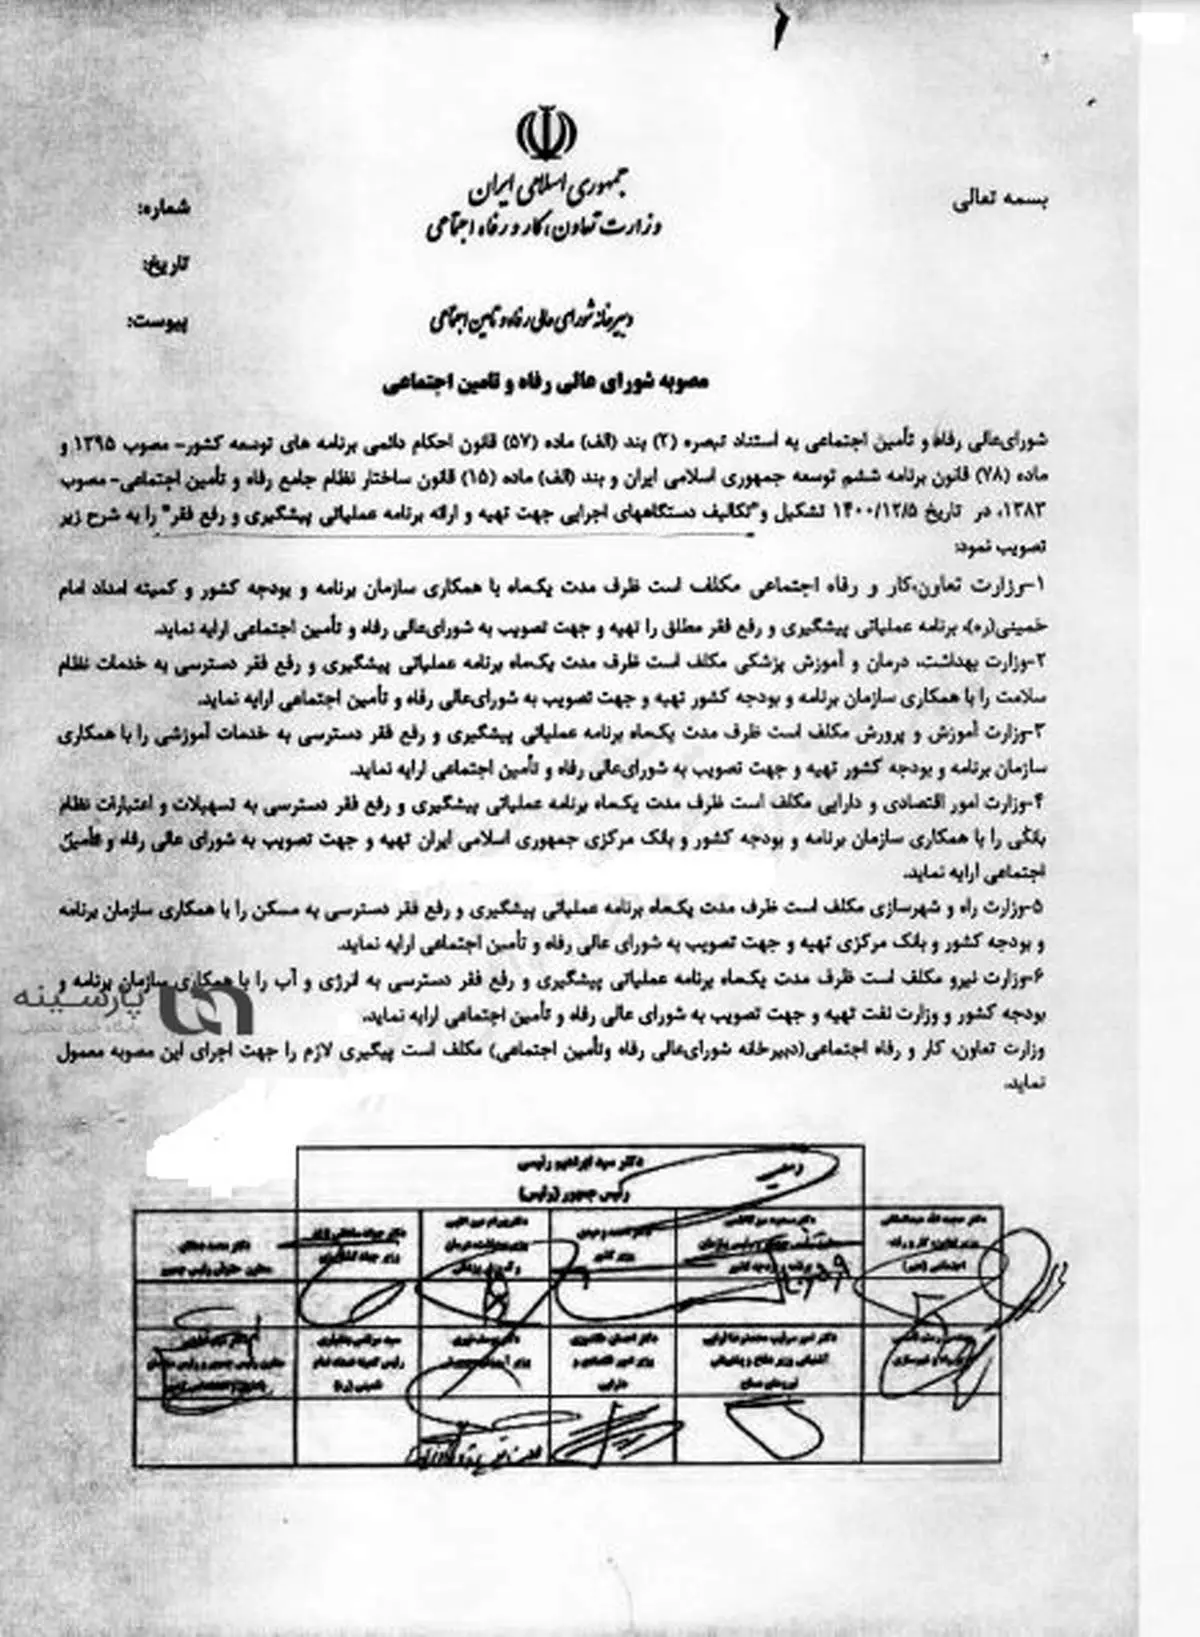 بسمه تعالی
جمهوری اسلامی ایران
وزارت تعاون، کار و رفاه اجتماعی
شماره:
تاریخ:
پیوست:
دبیرخانه شورای عالی رفاه و تامین اجتماعی
مصوبه شورای عالی رفاه و تامین اجتماعی
شورای‌عالی رفاه و تأمین اجتماعی به استناد تبصره (۲) بند (الف) ماده (۵۷) قانون احکام دائمی برنامه های توسعه کشور- مصوب ۱۳۹۵ و
ماده (۷۸) قانون برنامه ششم توسعه جمهوری اسلامی ایران و بند (الف) ماده (۱۵) قانون ساختار نظام جامع رفاه و تأمین اجتماعی- مصوب
۱۳۸۳، در تاریخ ۱۴۰۰/۱۲/۵ تشکیل و"تکالیف دستگاههای اجرایی جهت تهیه و ارائه برنامه عملیاتی پیشگیری و رفع فقر" را به شرح زیر
تصویب نمود:
۱-وزارت تعاون،کار و رفاه اجتماعی مکلف است ظرف مدت یک‌ماه با همکاری سازمان برنامه و بودجه کشور و کمیته امداد امام
خمینی(ره)، برنامه عملیاتی پیشگیری و رفع فقر مطلق را تهیه و جهت تصویب به شورای‌عالی رفاه و تأمین اجتماعی ارایه نماید.
۲-وزارت بهداشت، درمان و آموزش پزشکی مکلف است ظرف مدت یک‌ماه برنامه عملیاتی پیشگیری و رفع فقر دسترسی به خدمات نظام
سلامت را با همکاری سازمان برنامه و بودجه کشور تهیه و جهت تصویب به شورای‌عالی رفاه و تأمین اجتماعی ارایه نماید.
۳-وزارت آموزش و پرورش مکلف است ظرف مدت یک‌ماه برنامه عملیاتی پیشگیری و رفع فقر دسترسی به خدمات آموزشی را با همکاری
سازمان برنامه و بودجه کشور تهیه و جهت تصویب به شورای‌عالی رفاه و تأمین اجتماعی ارایه نماید.
۴-وزارت امور اقتصادی و دارایی مکلف است ظرف مدت یک‌ماه برنامه عملیاتی پیشگیری و رفع فقر دسترسی به تسهیلات و اعتبارات نظام
بانکی را با همکاری سازمان برنامه و بودجه کشور و بانک مرکزی جمهوری اسلامی ایران تهیه و جهت تصویب به شورای عالی رفاه و تأمین
اجتماعی ارایه نماید.
۵-وزارت راه و شهرسازی مکلف است ظرف مدت یک‌ماه برنامه عملیاتی پیشگیری و رفع فقر دسترسی به مسکن را با همکاری سازمان برنامه
و بودجه کشور و بانک مرکزی تهیه و جهت تصویب به شورای عالی رفاه و تأمین اجتماعی ارایه نماید.
۶-وزارت نیرو مکلف است ظرف مدت یک‌ماه برنامه عملیاتی پیشگیری و رفع فقر دسترسی به انرژی و آب را با همکاری سازمان برنامه و
بودجه کشور و وزارت نفت تهیه و جهت تصویب به شورای عالی رفاه و تأمین اجتماعی ارایه نماید.
وزارت تعاون، کار و رفاه اجتماعی(دبیرخانه شورای‌عالی رفاه وتأمین اجتماعی) مکلف است پیگیری لازم را جهت اجرای این مصوبه معمول
نماید.
پارسینه
دکتر سید ابراهیم رئیسی
رئیس جمهور (رئیس)
دکتر حجت اله عبدالملکی
اجتماعی (دبیر)
دکتر مسعود میرکاظمی
وزیر کشور
دکتر بهرام عین اللهی
وزیر بهداشت، درمان
دکتر محمد دهقان
معاون حقوقی رئیس جمهور
دکتر امیر سرتیپ محمدرضا قرایی
آشتیانی وزیر دفاع و پشتیبانی
نیروهای مسلح
دکتر احسان خاندوزی
وزیر امور اقتصادی و
دارایی
سید مرتضی بختیاری
رئیس کمیته امداد امام
خمینی (ره)